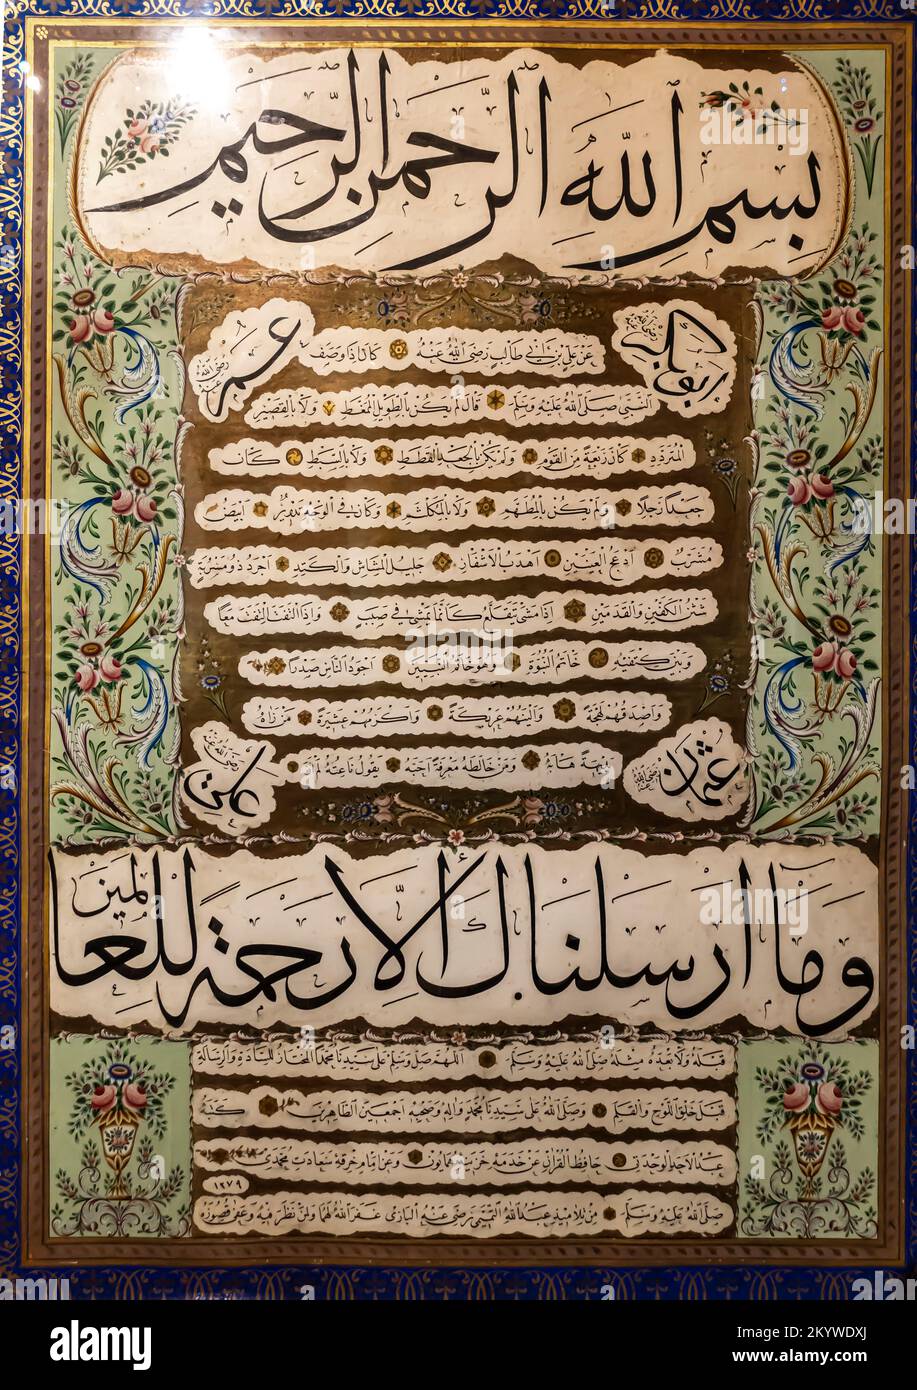 بسم الله الرحمن الرحيم
ابو بكر رضي الله عنه
عمر رضي الله عنه
عن علي بن ابي طالب رضي الله عنه كان اذا وصف
النبي صلى الله عليه وسلم قال لم يكن بالطويل الممغط ولا بالقصير
المتردد كان ربعة من القوم ولم يكن بالجعد القطط ولا بالسبط كان
جعدا رجلا ولم يكن بالمطهم ولا بالمكلثم وكان في الوجه تدوير ابيض
مشرب ادعج العينين اهدب الاشفار جليل المشاش والكتد اجرد ذو مسربة
شثن الكفين والقدمين اذا مشى تقلع كانما يمشي في صبب واذا التفت التفت معا
وبين كتفيه خاتم النبوة وهو خاتم النبيين اجود الناس صدرا
واصدقهم لهجة والينهم عريكة واكرمهم عشيرة من رآه
بديهة هابه ومن خالطه معرفة احبه يقول ناعته لم ار
عثمان رضي الله عنه
علي رضي الله عنه
وما ارسلناك الا رحمة للعالمين
قبله ولا بعده مثله صلى الله عليه وسلم اللهم صل وسلم على سيدنا محمد المختار للسيادة والرسالة
قبل خلق اللوح والقلم وصلى الله على سيدنا محمد واله وصحبه اجمعين الطاهرين كتبه
عبد الاحد الوحدتي حافظ القران عن خدمه خرقت همايون وعن امام خرقة سعادت محمدي
صلى الله عليه وسلم من تلاميذ عبد الله رضي عنه الباري غفر الله لهما ولمن نظر فيه وعفر قصوره
١٢٧٩
alamy
Image ID: 2KYWDXJ
www.alamy.com